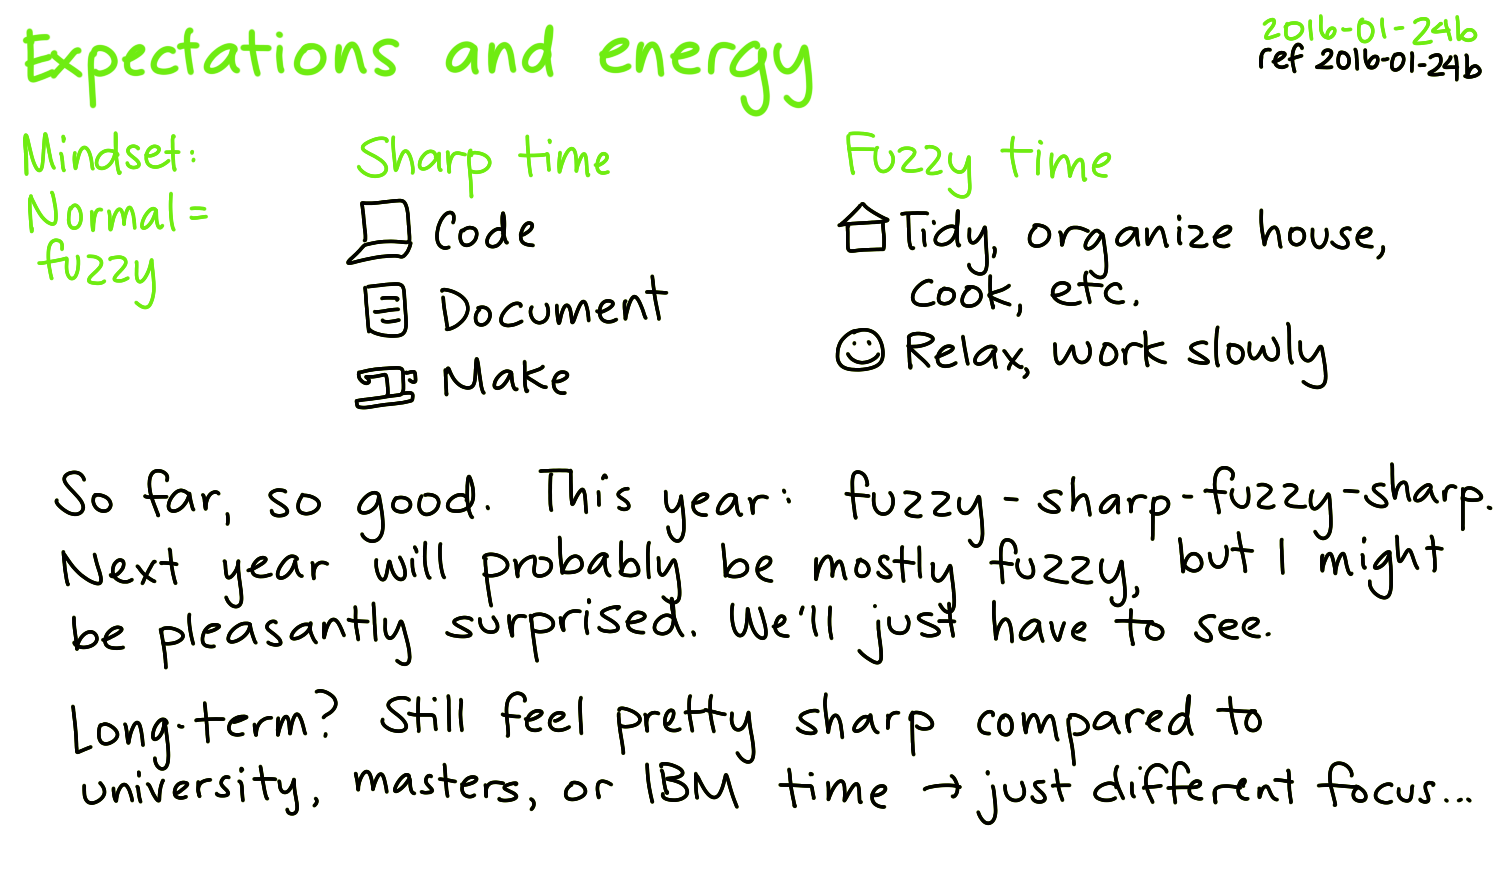 Expectations and energy
2016-01-24b
ref 2016-01-24b
Mindset:
Normal =
fuzzy
Sharp time
Code
Document
Make
Fuzzy time
Tidy, organize house,
cook, etc.
Relax, work slowly
So far, so good. This year: fuzzy-sharp-fuzzy-sharp.
Next year will probably be mostly fuzzy, but I might
be pleasantly surprised. We'll just have to see.
Long-term? Still feel pretty sharp compared to
university, masters, or IBM time → just different focus...